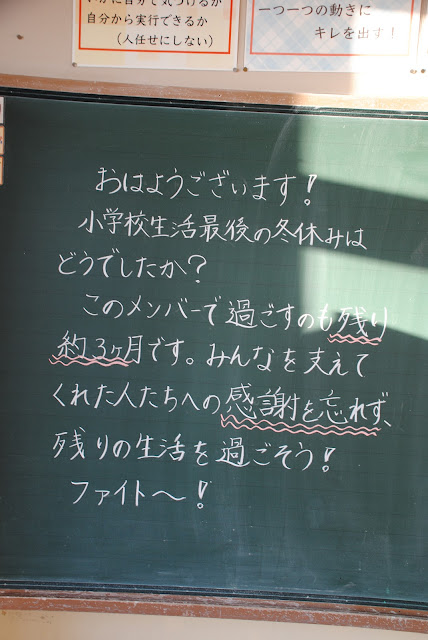 自分から実行できるか
（人任せにしない）
一つ一つの動きに
キレを出す！
おはようございます！
小学校生活最後の冬休みは
どうでしたか？
このメンバーで過ごすのも残り
約3ヶ月です。みんなを支えて
くれた人たちへの感謝を忘れず、
残りの生活を過ごそう！
ファイト～！